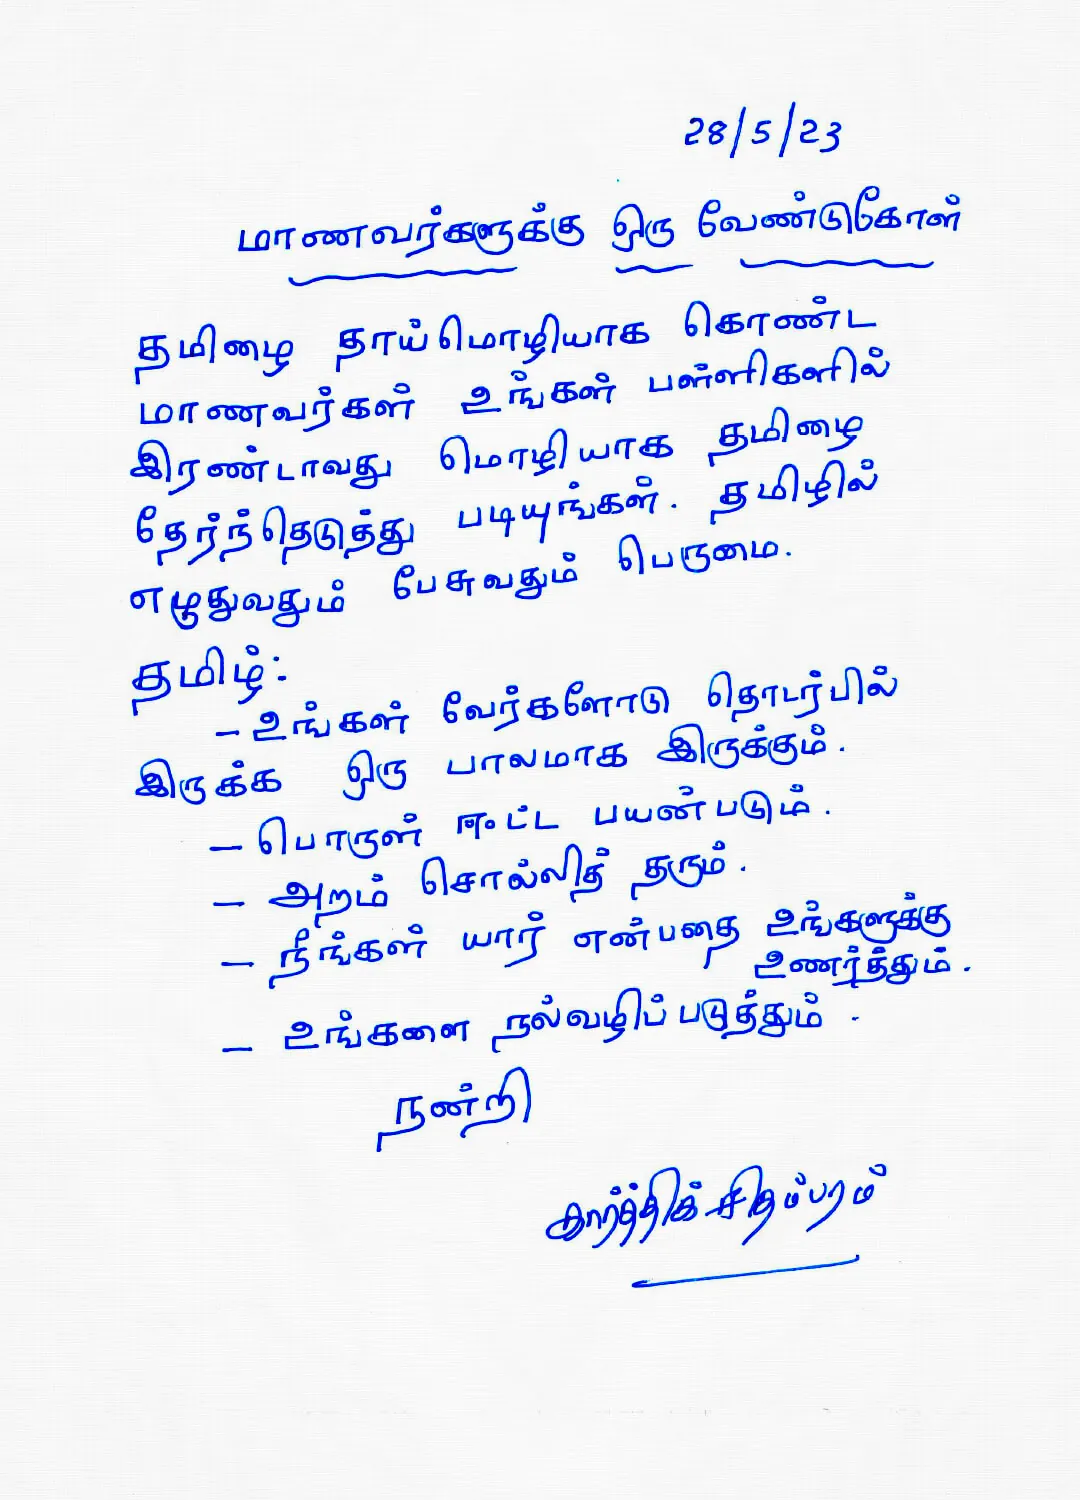 28/5/23
மாணவர்களுக்கு ஒரு வேண்டுகோள்
தமிழை தாய்மொழியாக கொண்ட
மாணவர்கள் உங்கள் பள்ளிகளில்
இரண்டாவது மொழியாக தமிழை
தேர்ந்தெடுத்து படியுங்கள். தமிழில்
எழுதுவதும் பேசுவதும் பெருமை.
தமிழ்:
- உங்கள் வேர்களோடு தொடர்பில்
இருக்க ஒரு பாலமாக இருக்கும்.
- பொருள் ஈட்ட பயண்படும்.
- அறம் சொல்லித் தரும்.
- நீங்கள் யார் என்பதை உங்களுக்கு
உணர்த்தும்.
- உங்களை நல்வழிப்படுத்தும்.
நன்றி
கார்த்திக் சிதம்பரம்